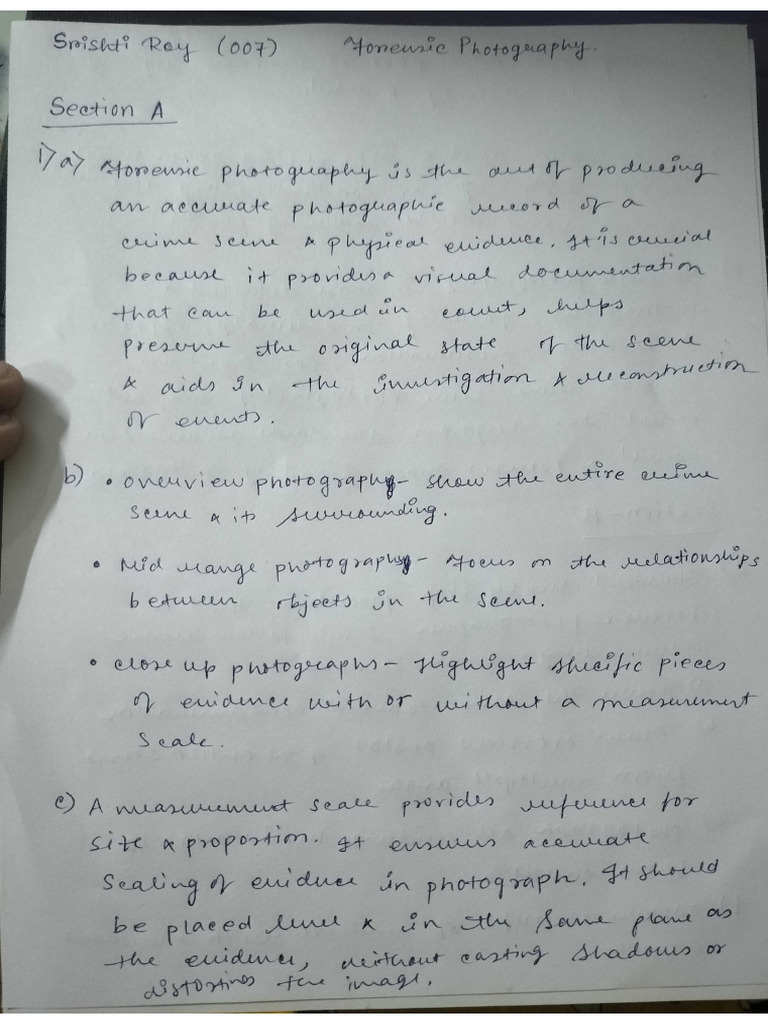 Srishti Roy (007) Forensic Photography.
Section A
1) a) Forensic photography is the art of producing
an accurate photographic record of a
crime scene & physical evidence. It is crucial
because it provides a visual documentation
that can be used in court, helps
preserve the original state of the scene
& aids in the investigation & reconstruction
of events.
b) • Overview photography - show the entire crime
scene & its surrounding.
• Mid range photography - Focus on the relationships
between objects in the scene.
• Close up photographs - Highlight specific pieces
of evidence with or without a measurement
scale.
c) A measurement scale provides reference for
size & proportion. It ensures accurate
scaling of evidence in photograph. It should
be placed level & in the same plane as
the evidence, without casting shadows or
distorting the image.